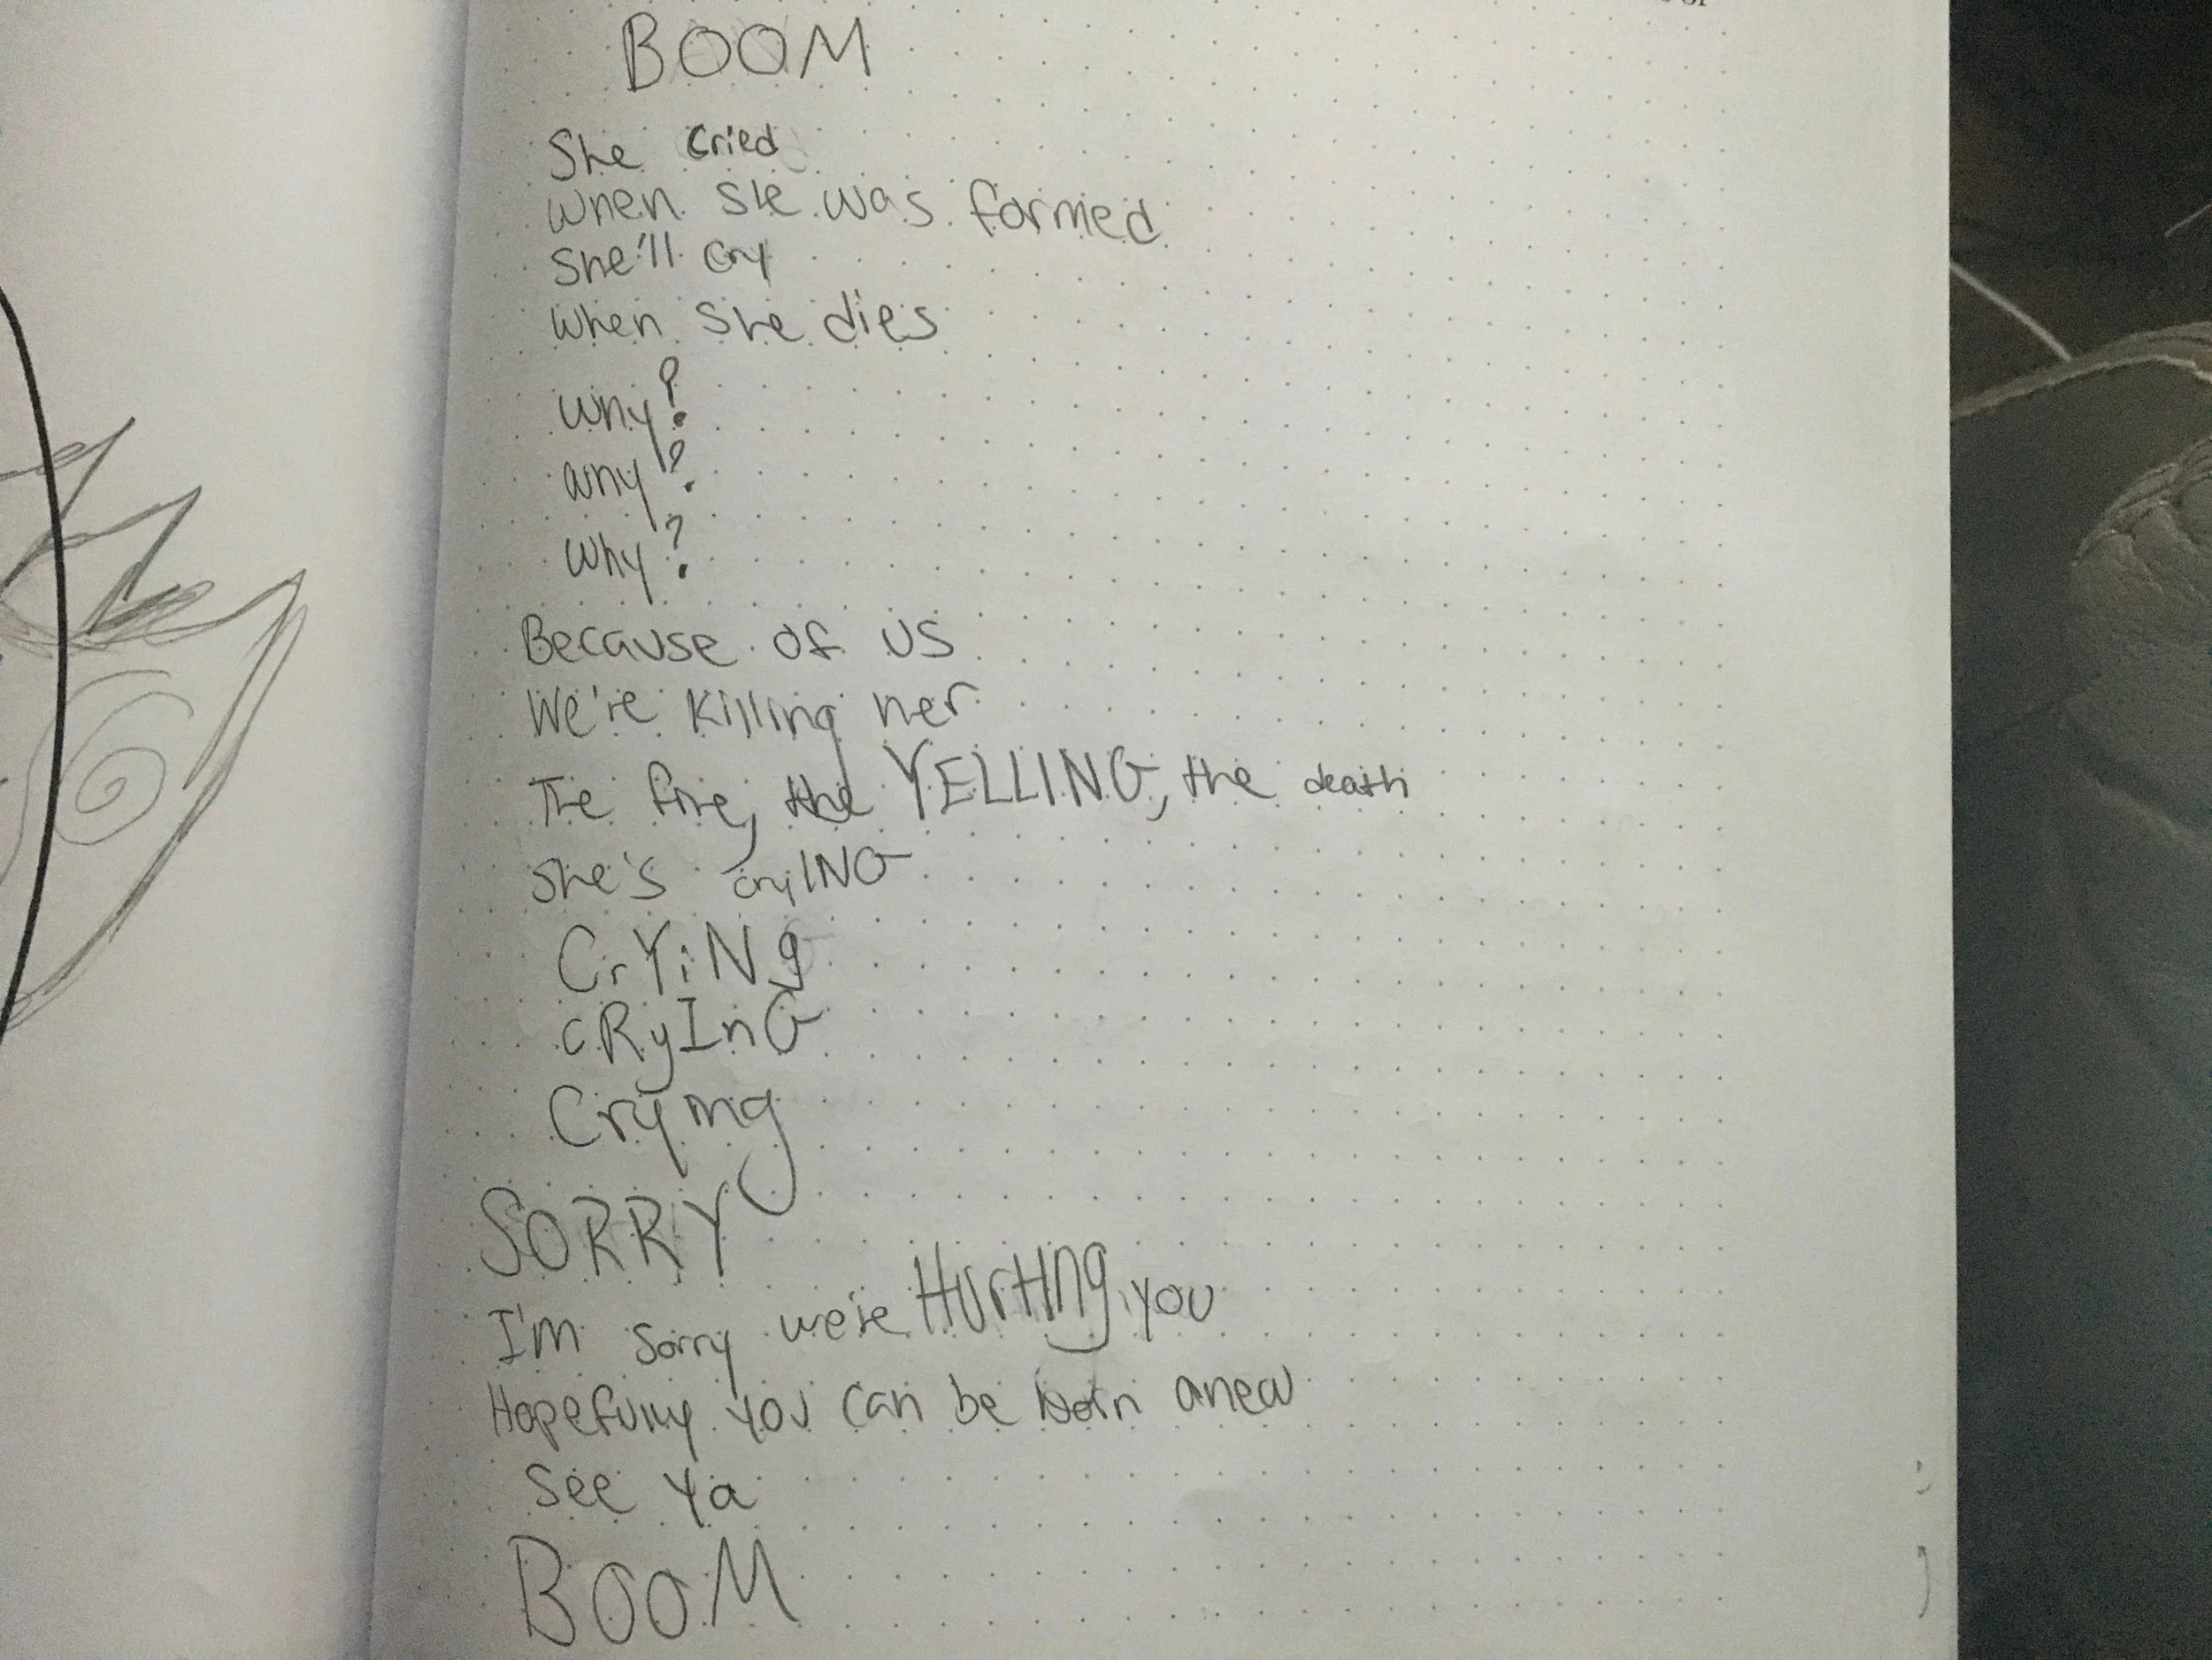 BOOM
She cried
when she was formed
she'll cry
when she dies
why?
why?
why?
Because of us
We're killing her
The fire, the YELLING, the death
she's cryING
CrYiNg
cRyInG
Crying
SORRY
I'm sorry we're HurtIng you
Hopefully you can be born anew
see ya
BOOM